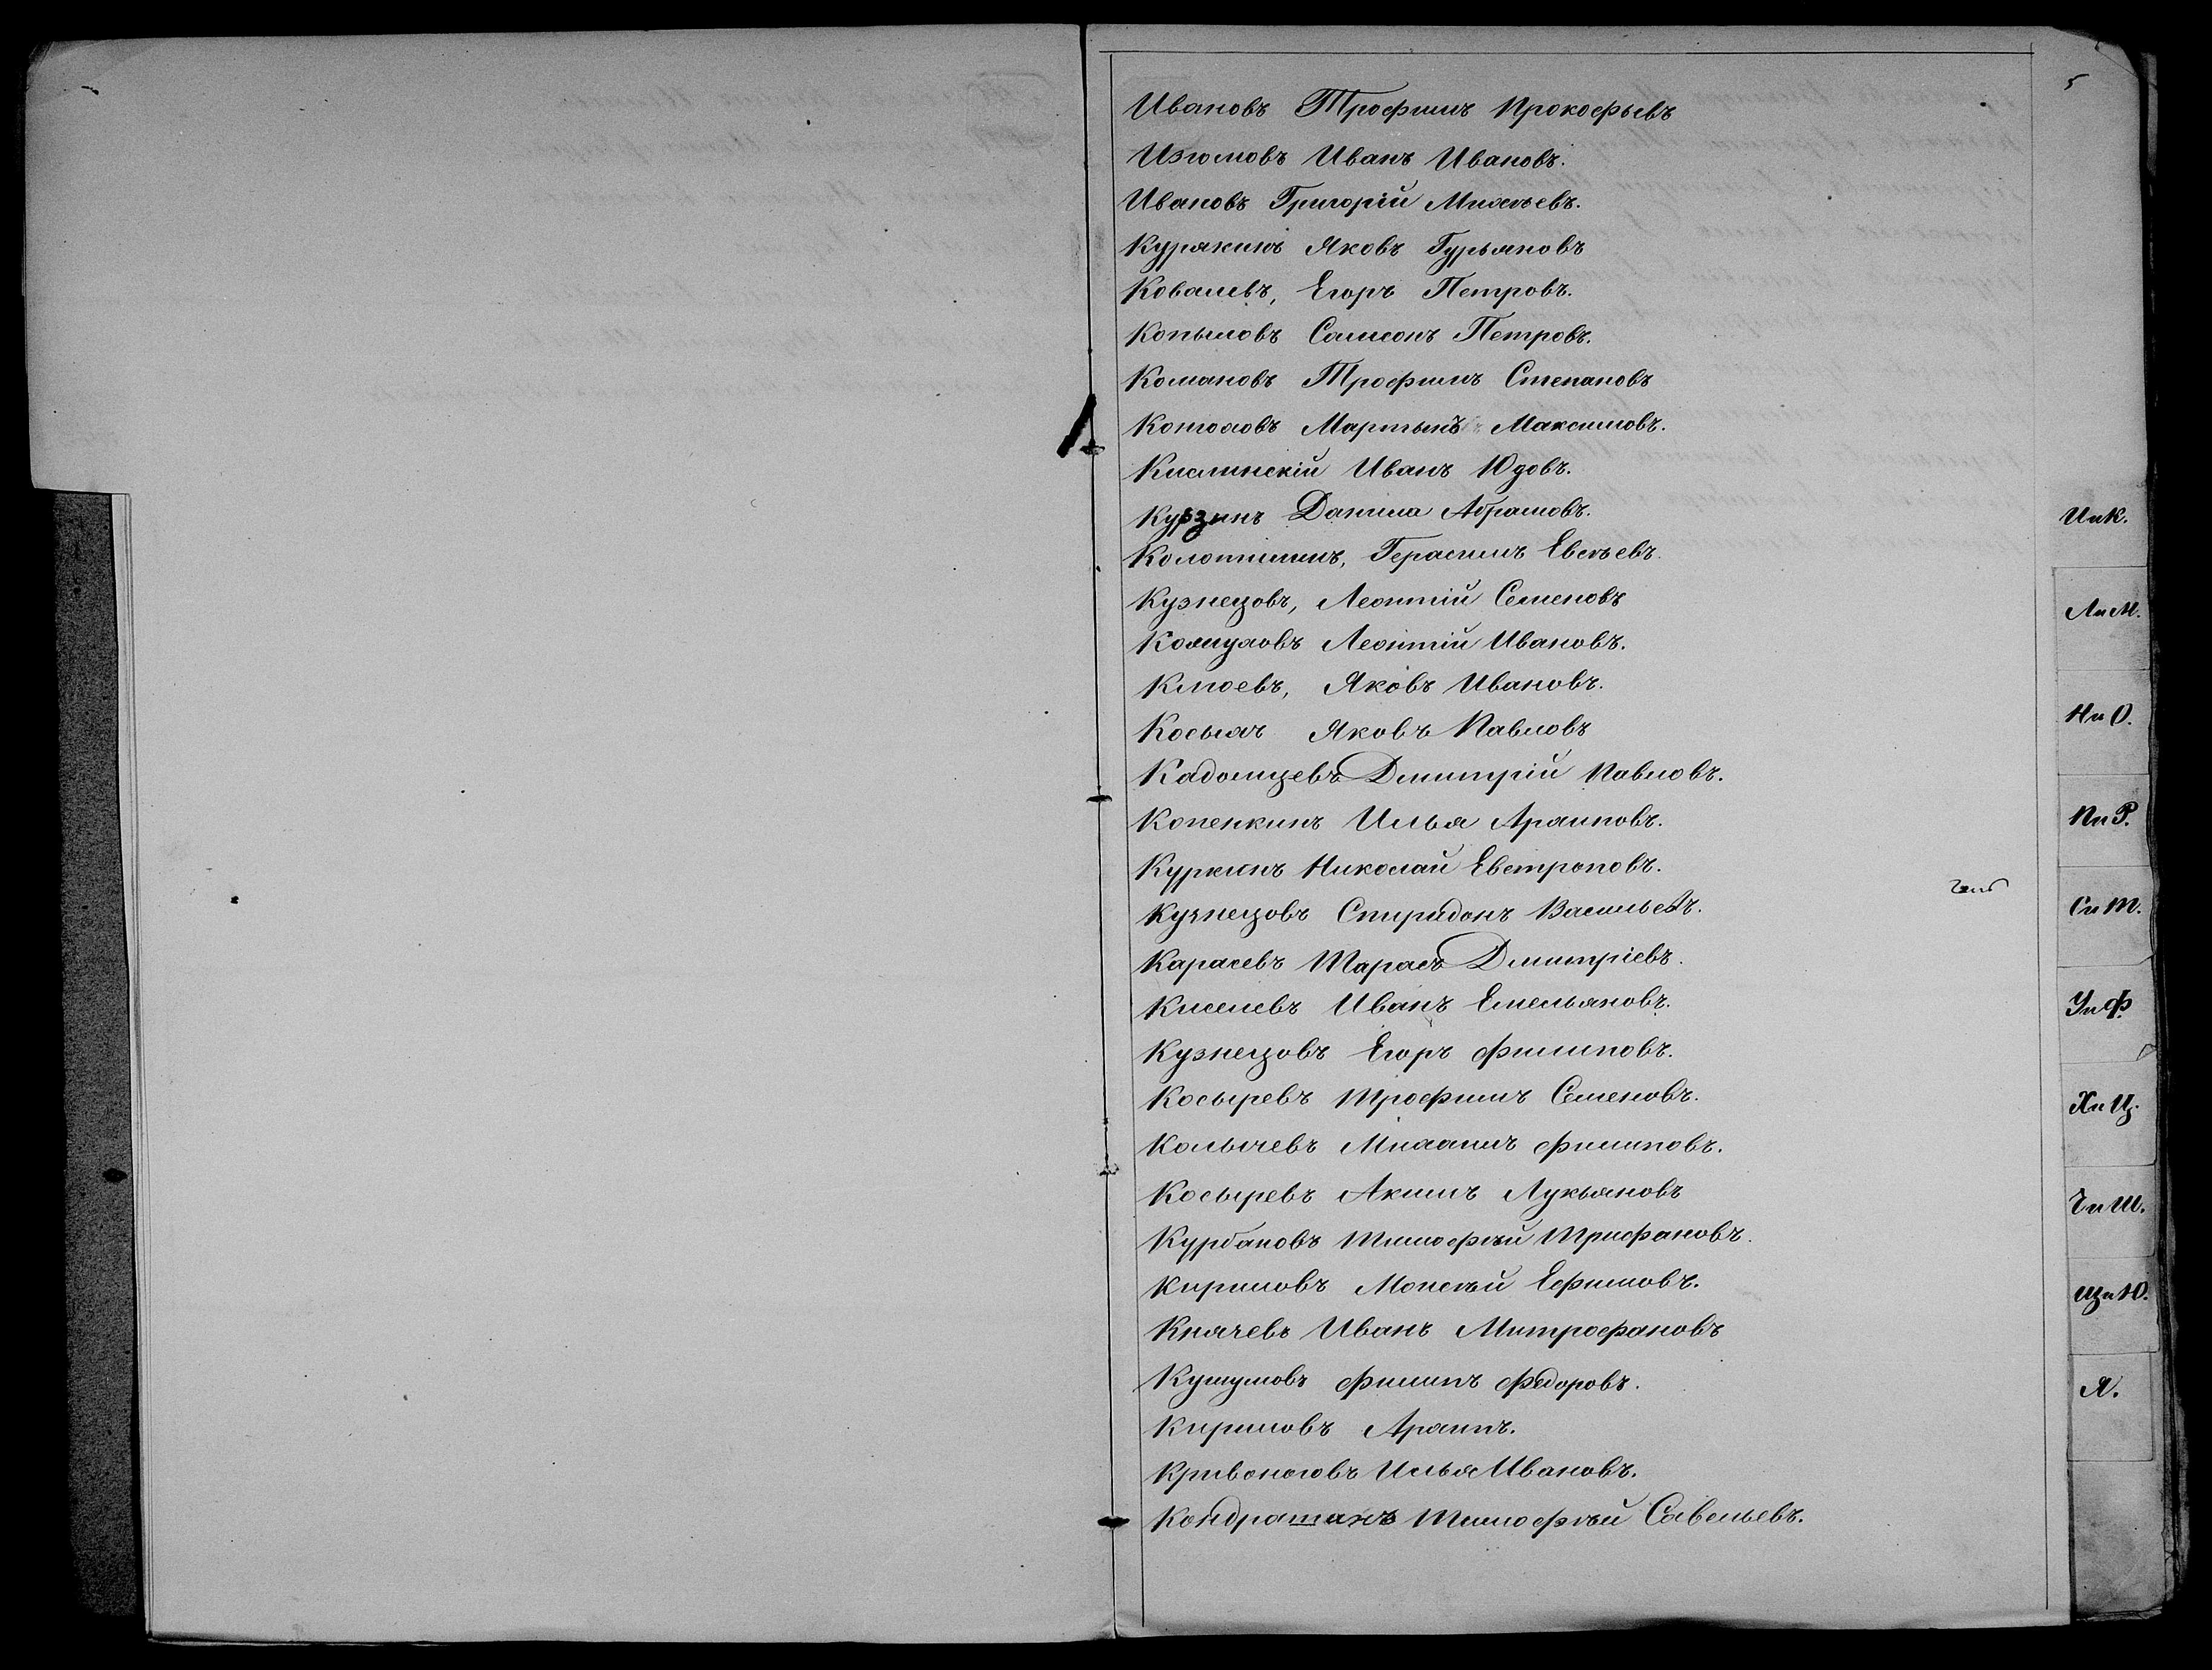 5
Ивановъ Трофимъ Прокофьевъ
Изюмовъ Иванъ Ивановъ.
Ивановъ Григорій Михѣевъ.
Курякинъ Яковъ Гурьяновъ
Ковалевъ, Егоръ Петровъ.
Копыловъ Самсонъ Петровъ.
Комановъ Трофимъ Степановъ
Мартынъ Максимовъ.
Кислинскій Иванъ Юдовъ.
Курзинъ Данила Абрамовъ.
Герасимъ Евсѣевъ.
Кузнецовъ, Леонтій Семеновъ
Леонтій Ивановъ.
Клюевъ, Яковъ Ивановъ.
Яковъ Павловъ
Кадомцевъ Дмитрій Павловъ.
Копенкинъ Илья Архиповъ.
Куркинъ Николай Евстроповъ.
Кузнецовъ Спиридонъ Васильевъ.
Карасевъ Тарасъ Дмитріевъ.
Киселевъ Иванъ Емельяновъ.
Кузнецовъ Егоръ Филиповъ.
Косыревъ Трофимъ Семеновъ.
Колычевъ Михаилъ Филиповъ.
Косыревъ Акимъ Лукьяновъ
Курбановъ Тимофѣй Трифановъ.
Кириловъ Мопсѣй Ефимовъ.
Князевъ Иванъ Митрофановъ
Филипъ Федоровъ.
Кириловъ Архипъ.
Кривоноговъ Илья Ивановъ.
Кондратанъ Тимофѣй Савельевъ.
И и К.
Л и М.
Н и О.
П и Р.
С и Т.
У и Ф.
Х и Ц.
Ч и Ш.
Щ и Ю.
Я.